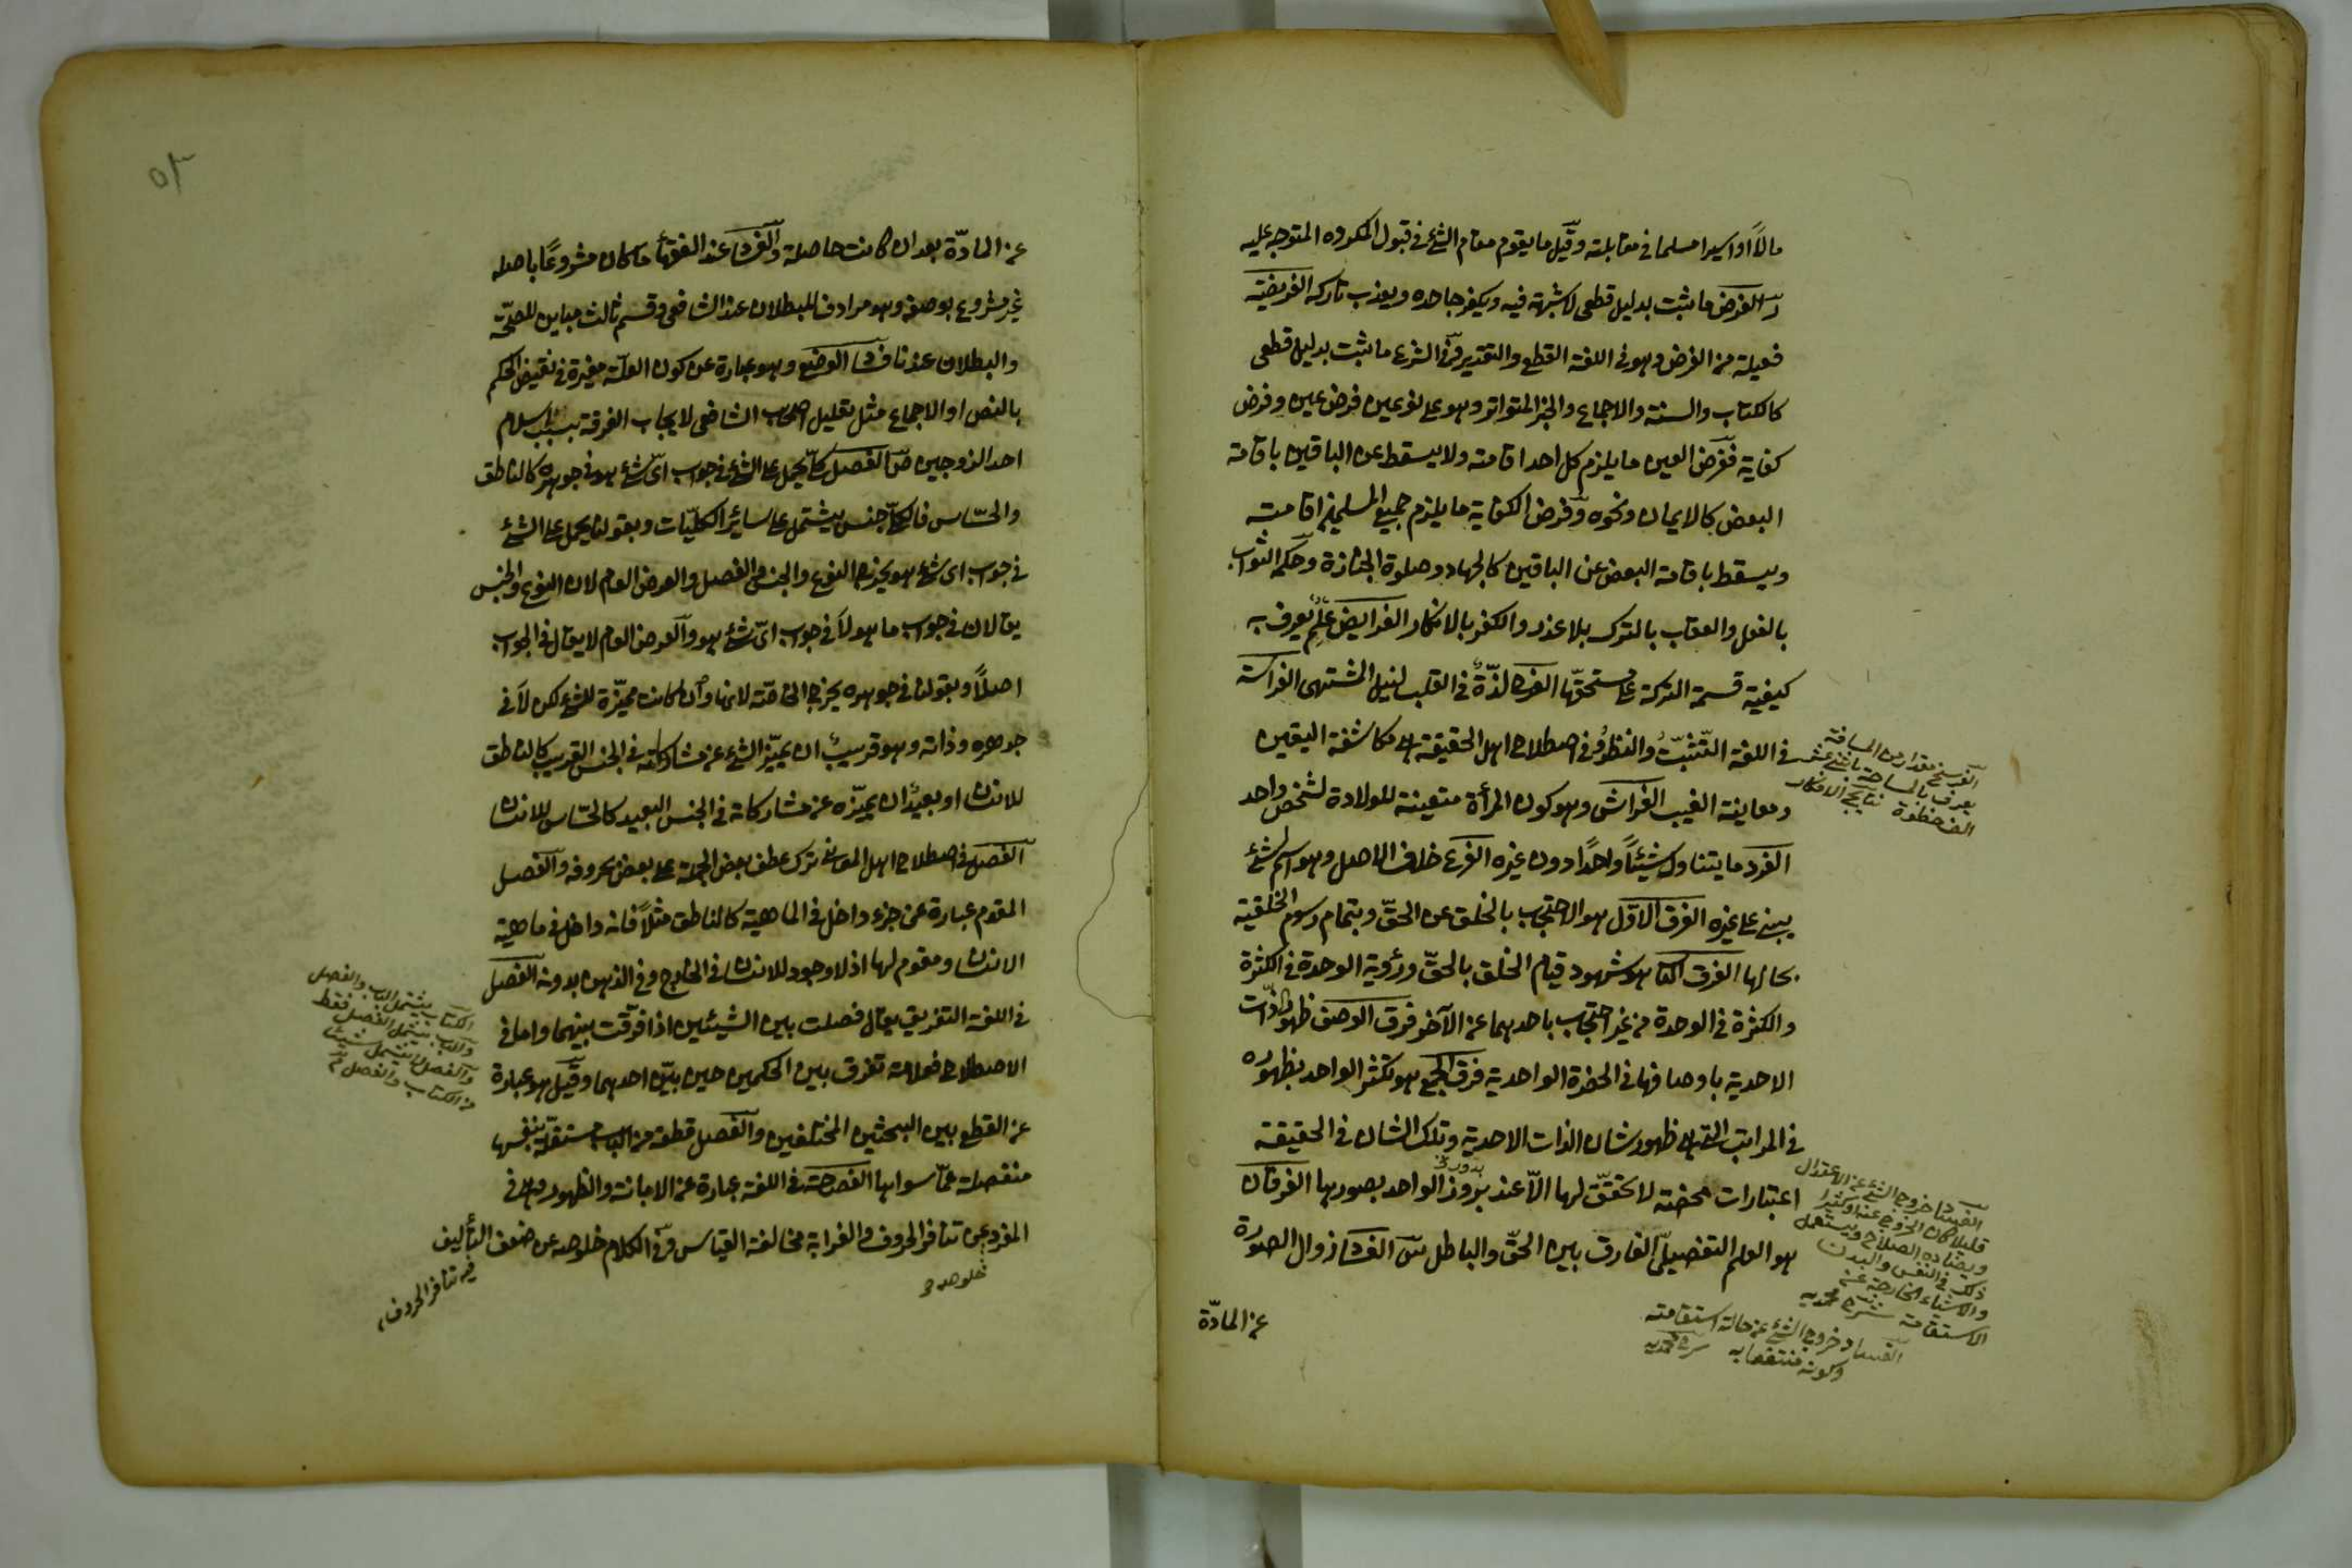 مالاً او اسيرا مسلما فى مقابلته وقيل ما يقوم مقام الشئ فى قبول المكروه المتوجه عليه
ر الفرض ما ثبت بدليل قطعى لا شبهة فيه ويكفر جاحده ويعذب تاركه الفريضة
فعيلة من الفرض وهو فى اللغة القطع والتقدير وفى الشرع ما ثبت بدليل قطعى
كالكتاب والسنة والاجماع والخبر المتواتر وهو على نوعين فرض عين وفرض
كفاية ففرض العين ما يلزم كل احد اقامته ولا يسقط عن الباقين باقامة
البعض كالايمان ونحوه وفرض الكفاية ما يلزم جميع المسلمين اقامته
ويسقط باقامة البعض عن الباقين كالجهاد وصلوة الجنازة وحكمه الثواب
بالفعل والعقاب بالترك بلا عذر والكفر بالانكار الفرايض علم يعرف به
كيفية قسمة التركة على مستحقها الفرح لذّة فى القلب لنيل المشتهى الفراسة
فى اللغة التثبّت والنظر وفى اصطلاح اهل الحقيقة هى مكاشفة اليقين
ومعاينة الغيب الفراش وهو كون المرأة متعينة للولادة لشخص واحد
الفرد ما يتناول شيئاً واحداً دون غيره الفرع خلاف الاصل وهو اسم لشئ
يبنى على غيره الفرق الاوّل هو الاحتجاب بالخلق عن الحقّ وبتمام رسوم الخلقية
بحالها الفرق الثانى هو شهود قيام الخلق بالحقّ ورؤية الوحدة فى الكثرة
والكثرة فى الوحدة من غير احتجاب باحدهما عن الآخر فرق الوصف ظهور الذّات
الاحدية باوصافها فى الحضرة الواحدية فرق الجمع هو تكثر الواحد بظهوره
فى المراتب التى هى ظهور شان الذات الاحدية وتلك الشان فى الحقيقة
اعتبارات محضة لا تحقّق لها الّا عند بروز الواحد بصورها الفرقان
هو العلم التفصيلىّ الفارق بين الحقّ والباطل س الفساد زوال الصورة
عن المادّة
الفرسخ مقدار من المسافة
يعرف بالمساحة باثنى عشر
الف خطوة نتايج الافكار
الفساد خروج الشئ عن الاعتدال
قليلا كان الخروج عنه او كثيرا
ويضاده الصلاح ويستعمل
ذلك فى النفس والبدن
والاشياء الخارجة عن
الاستقامة شرح محمديه
الفساد خروج الشئ عن حالة استقامته
وكونه منتفعا به شرح محمديه
٥٣
عن المادّة بعد ان كانت حاصلة والفساد عند الفقهأ ما كان مشروعاً باصله
غير مشروع بوصفه وهو مرادف للبطلان عند الشافعى وقسم ثالث مباين للصحّة
والبطلان عندنا فساد الوضع وهو عبارة عن كون العلّة معتبرة فى نقيض الحكم
بالنص او الاجماع مثل تعليل اصحاب الشافعى لايجاب الفرقة بسبب اسلام
احد الزوجين ص الفصل كلّى يحمل على الشئ فى جواب اىّ شئ هو فى جوهره كالناطق
والحسّاس فالكلّى جنس يشتمل على سائر الكليّات وبقولنا يحمل على الشئ
فى جواب اى شئ هو يخرج النوع والجنس والفصل والعرض العام لان النوع والجنس
يقالان فى جواب ما هو لا فى جواب اىّ شئ هو والعرض العام لا يقال فى الجواب
اصلاً وبقولنا فى جوهره يخرج الخاصّة لانها وان كانت مميّزة للشئ لكن لا فى
جوهره وذاته وهو قريب ان يميّز الشئ عن مشاركاته فى الجنس القريب كالناطق
للانسان او بعيد ان يميّزه عن مشاركاته فى الجنس البعيد كالحسّاس للانسان
الفصل فى اصطلاح اهل المعانى ترك عطف بعض الجملة على بعض بحروفه والفصل
المقوم عبارة عن جزء داخل فى الماهية كالناطق مثلاً فانه داخل فى ماهية
الانسان ومقوم لها اذ لا وجود للانسان فى الخارج وفى الذهن بدونه الفصل
فى اللغة التفريق يقال فصلت بين الشيئين اذا فرّقت بينهما واما فى
الاصطلاح فعلامة تفرق بين الحكمين حين بيّن احدهما وقيل هو عبارة
عن القطع بين البحثين المختلفين والفصل قطعة من الباب مستقلّة بنفسها
منفصلة عمّا سواها الفصاحة فى اللغة عبارة عن الابانة والظهور وهى فى
المفرد عن تنافر الحروف والغرابة مخالفة القياس وفى الكلام خلوصه عن ضعف التأليف
خلوصه
فيه تنافر الحروف
الكتاب يشتمل الباب والفصل
والباب يشتمل الفصل فقط
والفصل لا يشتمل شيئا
من الكتاب والفصل